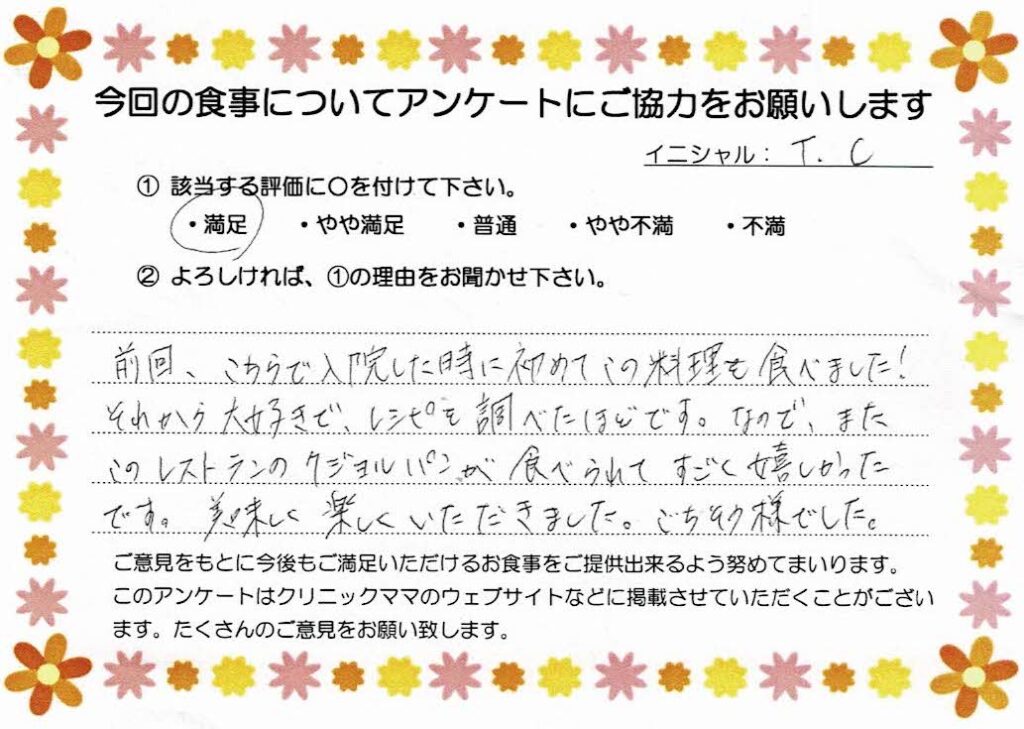 今回の食事についてアンケートにご協力をお願いします
イニシャル： T. C
① 該当する評価に〇を付けて下さい。
・満足 ・やや満足 ・普通 ・やや不満 ・不満
② よろしければ、①の理由をお聞かせ下さい。
前回、こちらで入院した時に初めてこの料理を食べました！
それから大好きで、レシピを調べたほどです。なので、また
このレストランのクジョルパンが食べられてすごく嬉しかった
です。美味しく楽しくいただきました。ごちそう様でした。
ご意見をもとに今後もご満足いただけるお食事をご提供出来るよう努めてまいります。
このアンケートはクリニックママのウェブサイトなどに掲載させていただくことがござい
ます。たくさんのご意見をお願い致します。